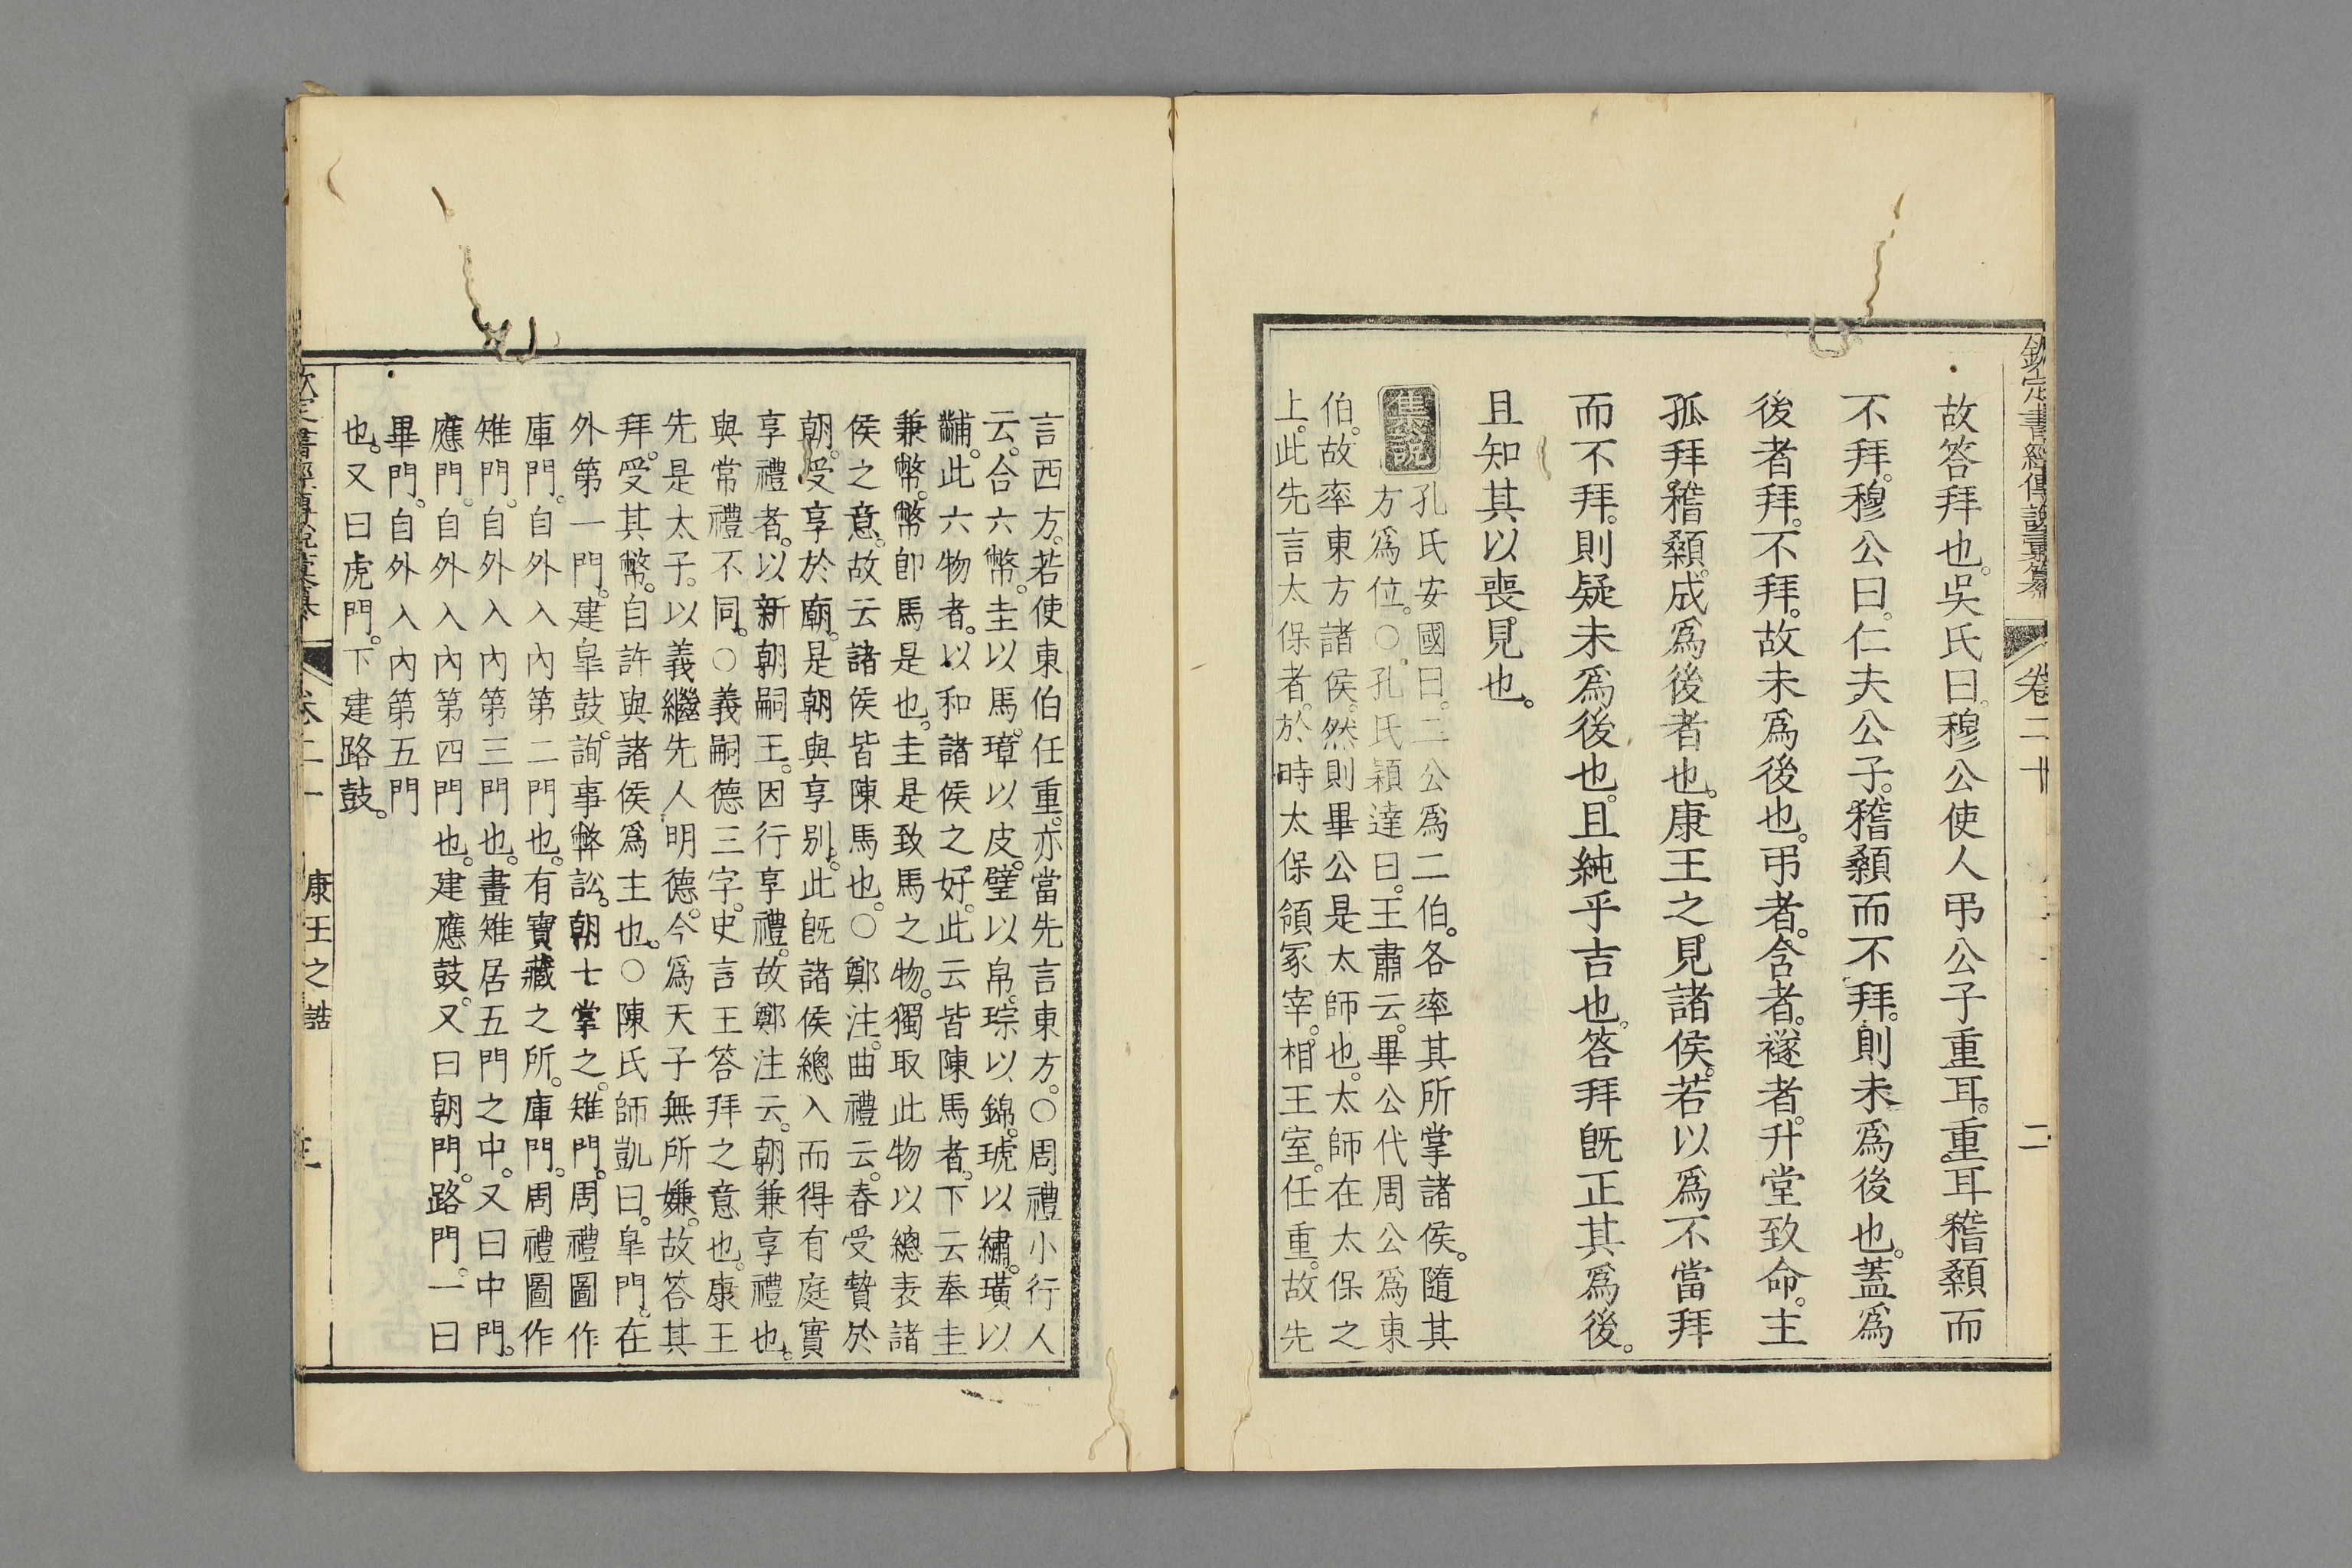 欽定書經傳說彙纂 卷二十 二
故答拜也。吳氏曰。穆公使人弔公子重耳。重耳稽顙而
不拜。穆公曰。仁夫公子。稽顙而不拜。則未爲後也。蓋爲
後者拜。不拜。故未爲後也。弔者。含者。襚者。升堂致命。主
孤拜稽顙。成爲後者也。康王之見諸侯。若以爲不當拜
而不拜。則疑未爲後也。且純乎吉也。答拜旣正其爲後。
且知其以喪見也。
集說
孔氏安國曰。二公爲二伯。各率其所掌諸侯。隨其
方爲位。○孔氏穎達曰。王肅云。畢公代周公爲東
伯。故率東方諸侯。然則畢公是太師也。太師在太保之
上。此先言太保者。於時太保領冢宰。相王室。任重。故先
言西方。若使東伯任重。亦當先言東方。○周禮小行人
云。合六幣。圭以馬。璋以皮。璧以帛。琮以錦。琥以繡。璜以
黼。此六物者。以和諸侯之好。此云皆陳馬者。下云奉圭
兼幣。幣卽馬是也。圭是致馬之物。獨取此物以總表諸
侯之意。故云諸侯皆陳馬也。○鄭注。曲禮云。春受贄於
朝。受享於廟。是朝與享別。此旣諸侯總入而得有庭實
享禮者。以新朝嗣王。因行享禮。故鄭注云。朝兼享禮也。
與常禮不同。○義嗣德三字。史言王答拜之意也。康王
先是太子。以義繼先人明德。今爲天子無所嫌。故答其
拜。受其幣。自許與諸侯爲主也。○陳氏師凱曰。皐門。在
外第一門。建皐鼓。詢事弊訟。朝士掌之。雉門。周禮圖作
庫門。自外入內第二門也。有寶藏之所。庫門。周禮圖作
雉門。自外入內第三門也。畫雉居五門之中。又曰中門。
應門。自外入內第四門也。建應鼓。又曰朝門。路門。一曰
畢門。自外入內第五門
也。又曰虎門。下建路鼓。
卷二十 康王之誥